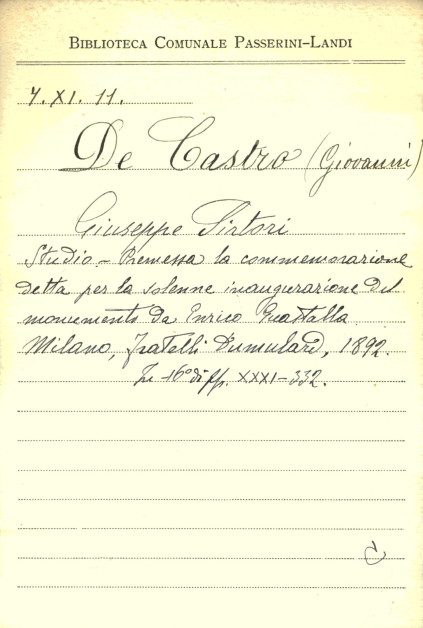 BIBLIOTECA COMUNALE PASSERINI-LANDI
4. XI. 11.
De Castro (Giovanni)
Giuseppe Sirtori
Studio - Premessa la commemorazione
detta per la solenne inaugurazione del
monumento da Enrico Guastalla
Milano, Fratelli Dumolard, 1892.
In 16° di pp. XXXI-332.